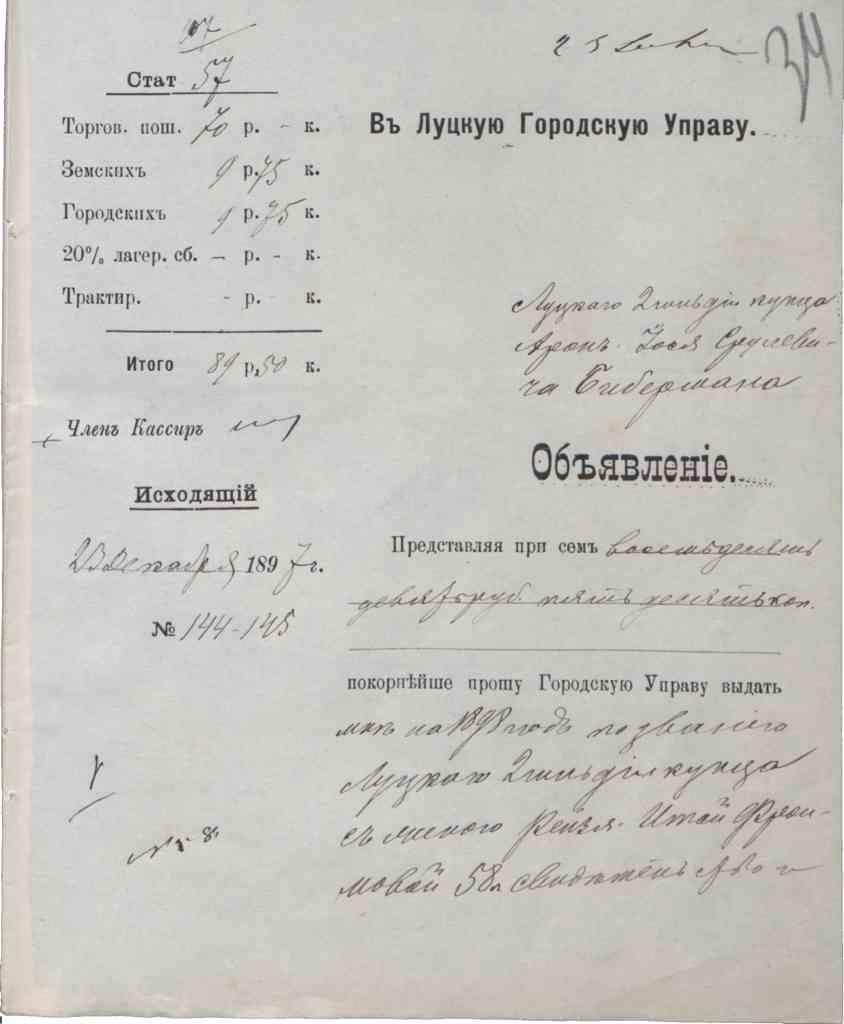 34
Стат 57
Торгов. пош. 70 р. - к.
Земскихъ 9 р. 75 к.
Городскихъ 9 р. 75 к.
20% лагер. сб. - р. - к.
Трактир. - р. к.
Итого 89 р. 50 к.
Членъ Кассиръ
Исходящій
23 Декабря 1897 г.
№ 144-145
Въ Луцкую Городскую Управу.
Луцкаго 2 гильдіи купца
Аронъ Іося Сруліови-
ча Бибермана
Объявленіе.
Представляя при семъ восемьдесятъ
девять руб. пятьдесятъ коп.
покорнѣйше прошу Городскую Управу выдать
мнѣ на 1898 годъ по званію
Луцкаго 2 гильдіи купца
съ женою Рейзя Итой Фрои-
мовой 58 л свидѣтельство